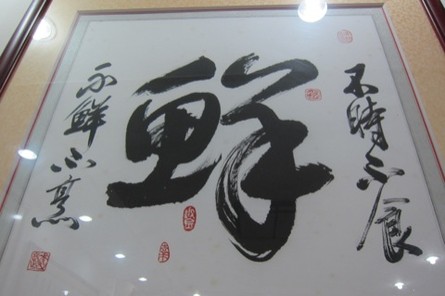 不時不食
鮮
不鮮不烹